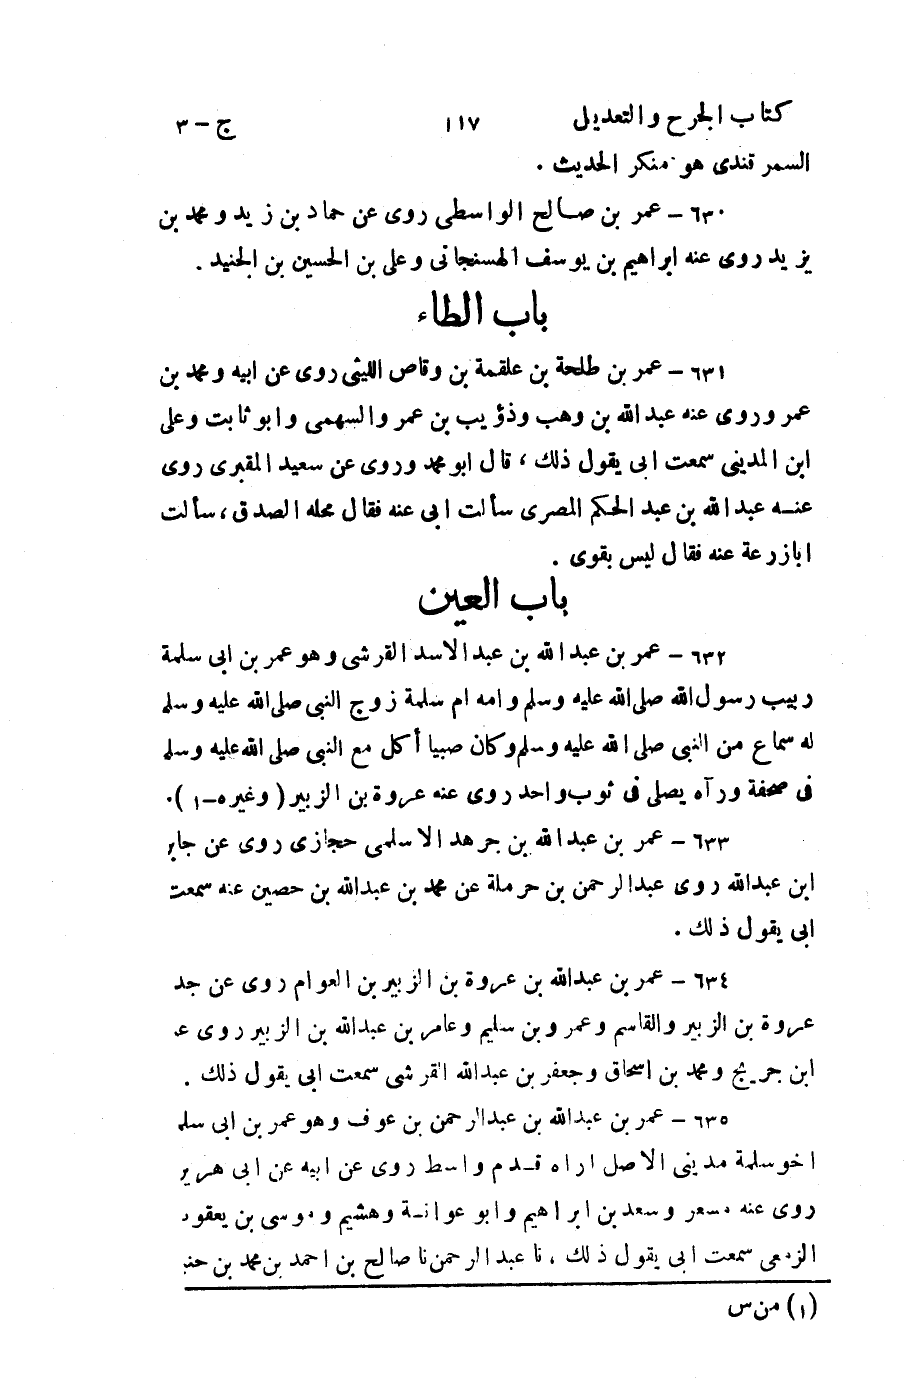 كتاب الجرح والتعديل ١١٧ ج - ٣
السمرقندى هو منكر الحديث .
٦٣٠ - عمر بن صالح الواسطى روى عن حماد بن زيد و محمد بن
يزيد روى عنه ابراهيم بن يوسف الهسنجانى وعلى بن الحسين بن الجنيد .
باب الطاء
٦٣١ - عمر بن طلحة بن علقمة بن وقاص الليثى روى عن ابيه و محمد بن
عمرو روى عنه عبد الله بن وهب وذؤيب بن عمرو السهمى وابو ثابت وعلى
ابن المدينى سمعت ابى يقول ذلك ، قال ابو محمد وروى عن سعيد المقبرى روى
عنه عبد الله بن عبد الحكم المصرى سألت ابى عنه فقال محله الصدق ، سألت
ابا زرعة عنه فقال ليس بقوى .
باب العين
٦٣٢ - عمر بن عبد الله بن عبد الاسد القرشى وهو عمر بن ابى سلمة
ربيب رسول الله صلى الله عليه وسلم وامه ام سلمة زوج النبى صلى الله عليه وسلم
له سماع من النبى صلى الله عليه وسلم وكان صبيا أكل مع النبى صلى الله عليه وسلم
فى صحفة ورآه يصلى فى ثوب واحد روى عنه عروة بن الزبير ( وغيره - ١ ) .
٦٣٣ - عمر بن عبد الله بن جرهد الاسلمى حجازى روى عن جابر
ابن عبد الله روى عبد الرحمن بن حرملة عن محمد بن عبد الله بن حصين عنه سمعت
ابى يقول ذلك .
٦٣٤ - عمر بن عبد الله بن عروة بن الزبير بن العوام روى عن جد
عروة بن الزبير والقاسم وعمرو بن سليم وعامر بن عبد الله بن الزبير روى عـ
ابن جريج و محمد بن اسحاق وجعفر بن عبد الله القرشى سمعت ابى يقول ذلك .
٦٣٥ - عمر بن عبد الله بن عبد الرحمن بن عوف وهو عمر بن ابى سلم
اخو سلمة مدينى الاصل اراه قدم واسط روى عن ابيه عن ابى هرير
روى عنه مسعر وسعد بن ابراهيم وابو عوانة وهشيم وموسى بن يعقوب
الزمعى سمعت ابى يقول ذلك ، نا عبد الرحمن نا صالح بن احمد بن محمد بن حنبـ
(١) من س